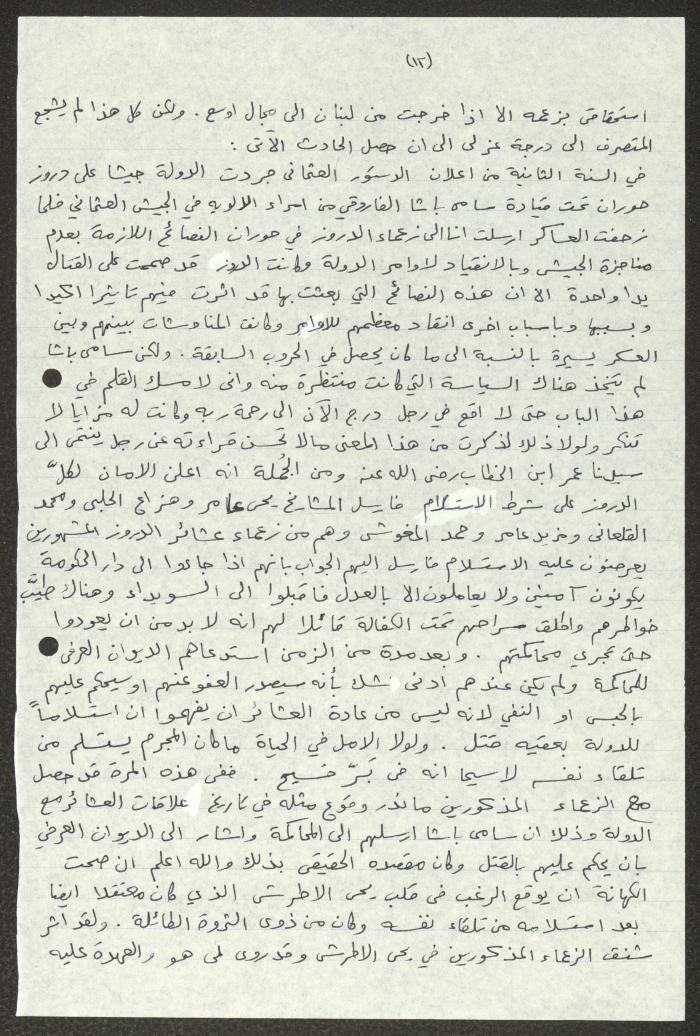 (١٢)
استحقاقي بزعمه الا اذا خرجت من لبنان الى مجال اوسع . ولكن كل هذا لم يشجع
المتصرف الى درجة عزلى الى ان حصل الحادث الآتى :
في السنة الثانية من اعلان الدستور العثمانى جردت الدولة جيشا على دروز
حوران تحت قيادة سامى باشا الفاروقي من امراء الالويه في الجيش العثماني فلما
زحفت العساكر ارسلت انا الى زعماء الدروز في حوران النصائح اللازمة بعدم
مناجزة الجيش وبالانقياد لاوامر الدولة وكانت الدروز قد صممت على القتال
يدا واحدة الا ان هذه النصائح التي بعثت بها قد اثرت فيهم تاثيرا اكيدا
وبسببها وباسباب اخرى انقاد معظمهم للاوامر وكانت المناوشات بينهم وبين
العسكر يسيرة بالنسبة الى ما كان يحصل في الحروب السابقة . ولكن سامى باشا
لم يتخذ هناك السياسة التي كانت منتظرة منه وانى لامسك القلم في
هذا الباب حتى لا اقع في رجل درج الآن الى رحمة ربه وكانت له مزايا لا
تنكر ولولا ذلك لذكرت من هذا المعنى مالا تحسن قراءته عن رجل ينتمى الى
سيدنا عمر ابن الخطاب رضى الله عنه ومن الجُملة انه اعلن الامان لكلّ
الدروز على شرط الاستسلام فارسل المشايخ يحى عامر وهزاع الحلبى ومحمد
القلعانى ومزيد عامر وحمد المغوش وهم من زعماء عشائر الدروز المشهورين
يعرضون عليه الاستسلام فارسل اليهم الجواب بانهم اذا جاءوا الى دار الحكومة
يكونون آمنين ولا يعاملون الا بالعدل فاقبلوا الى السويداء وهناك طيَّب
خواطرهم واطلق سراحهم تحت الكفالة قائلا لهم انه لا بد من ان يعودوا
حتى تجري محاكمتهم . وبعد مدة من الزمن استدعاهم الديوان العرفى
للمحاكمة ولم يكن عندهم ادنى شك بأنه سيصدر العفو عنهم او سيحكم عليهم
بالحبس او النفي لانه ليس من عادة العشائر ان يفهموا ان استسلاماً
للدولة يعقبه قتل . ولولا الامل في الحياة ما كان المجرم يستسلم من
تلقاء نفسه لاسيما انه فى بَرّ فسيح . ففى هذه المرة قد حصل
مع الزعماء المذكورين ما ندر وقوع مثله في تاريخ علاقات العشائر مع
الدولة وذلك ان سامى باشا ارسلهم الى المحاكمة واشار الى الديوان العرفي
بان يحكم عليهم بالقتل وكان مقصده الحقيقى بذلك والله اعلم ان صحت
الكهانة ان يوقع الرعب فى قلب يحى الاطرش الذي كان معتقلا ايضا
بعد استسلامه من تلقاء نفسه وكان من ذوى الثروة الطائلة . ولقد اثر
شنق الزعماء المذكورين في يحى الاطرش وقد روى لى هو والعهدة عليه